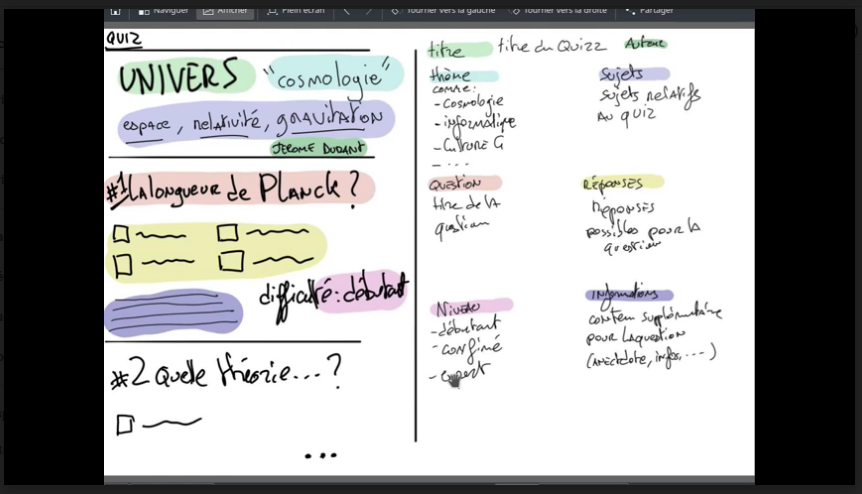 Naviguer Afficher Plein écran Tourner vers la gauche Tourner vers la droite Partager
QUIZ
UNIVERS "cosmologie"
espace, relativité, gravitation
JEROME DURANT
#1 La longueur de Planck ?
difficulté : débutant
#2 Quelle théorie...?
...
titre titre du Quizz Auteur
thème
comme :
- cosmologie
- informatique
- Culture G
- ....
Sujets
sujets relatifs
au quiz
QUESTION
titre de la
question
RÉPONSES
Réponses
possibles pour la
question
Niveau
- débutant
- confirmé
- expert
Informations
contenu supplémentaire
pour la question
(anecdote, infos, ...)